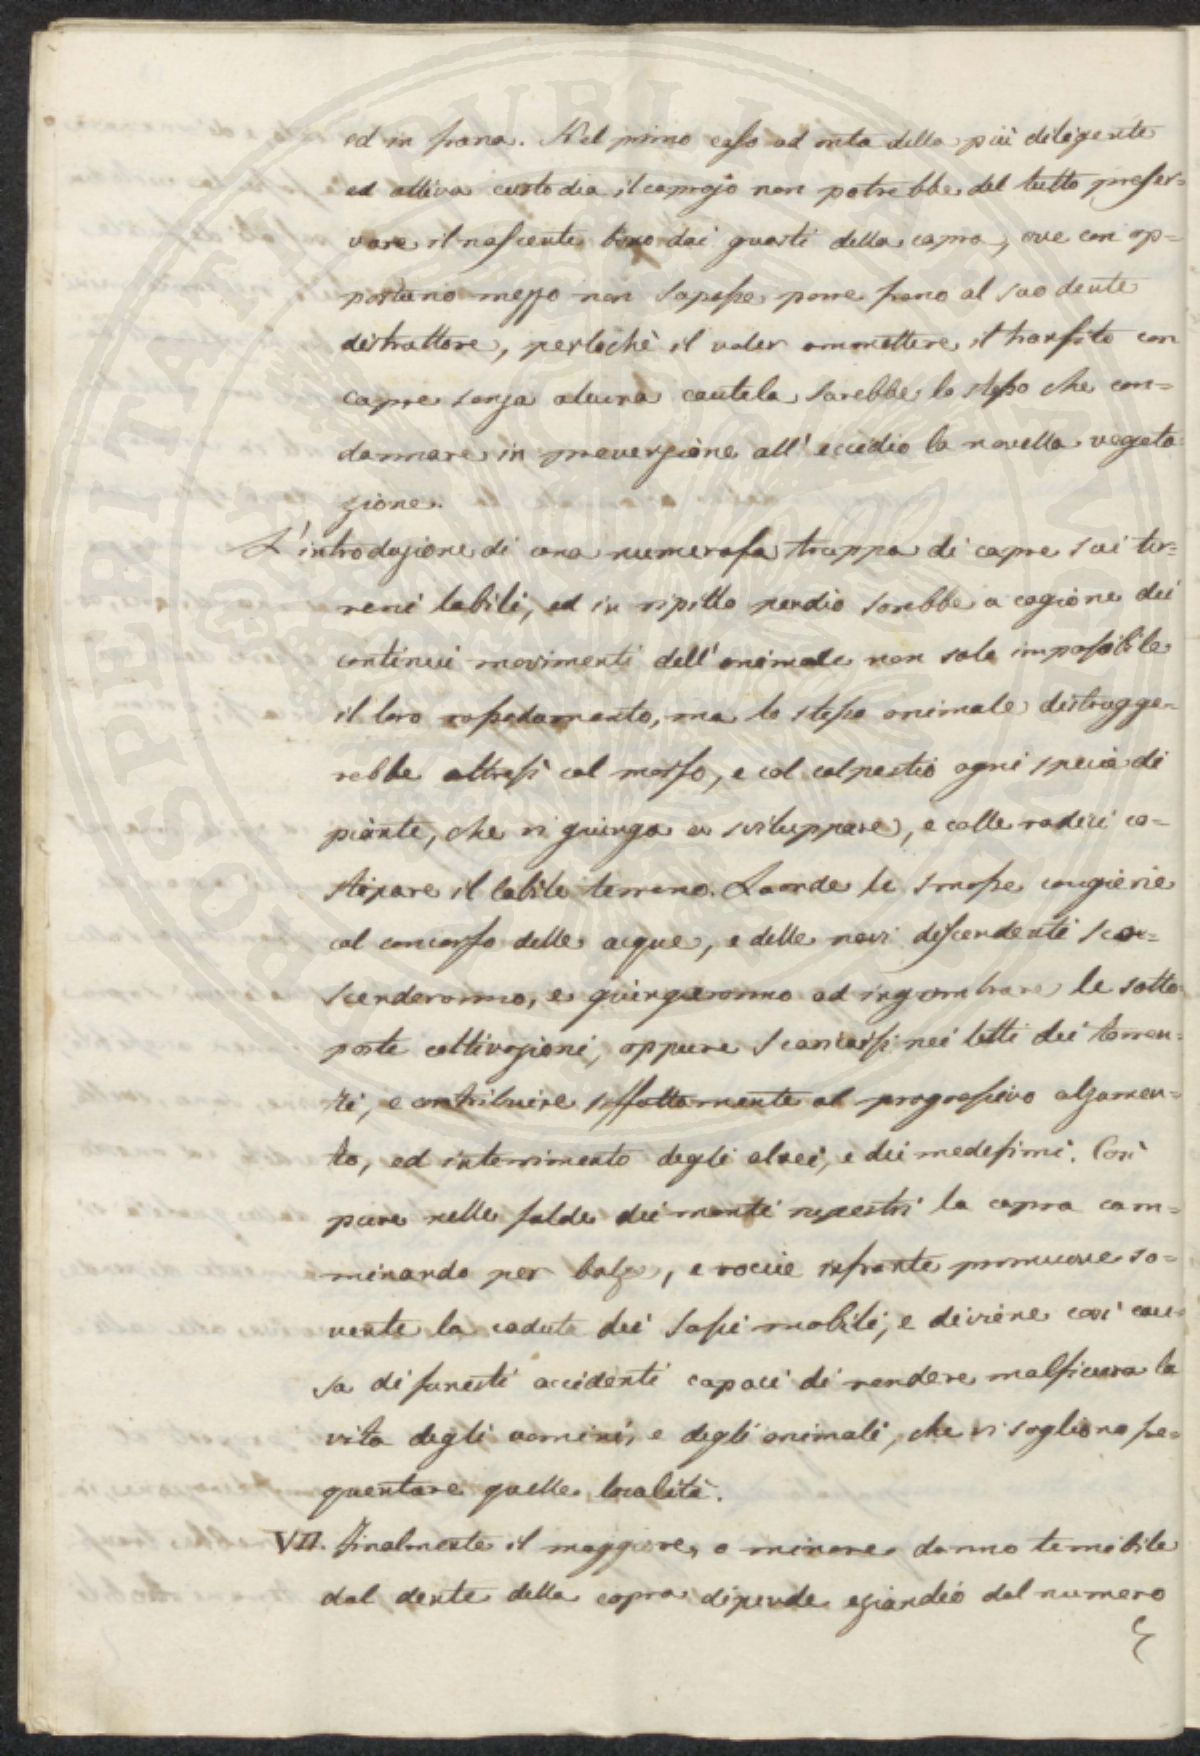 ed in frana. Nel primo caso ad onta della più diligente
ed attiva custodia il caprajo non potrebbe del tutto preser=
vare il nascente boso dai guasti della capra, ove con op=
portuno mezzo non sapesse porre freno al suo dente
distruttore, perlochè il voler ammettere il transito con
capre senza alcuna cautela sarebbe lo stesso che con=
dannare in prevenzione all'eccidio la novella vegeta=
zione.
L'introduzione di una numerosa truppa di capre sui ter=
reni labili, ed in ripitto pendio sarebbe a cagione dei
continui movimenti dell'animale non solo impossibile
il loro rassodamento, ma lo stesso animale distrugge=
rebbe altresì col morso, e col calpestio ogni specie di
piante, che vi giunga a sviluppare, e colle radici co=
stipare il labile terreno. Laonde le smosse congierie
col concorso delle acque, e delle nevi descendenti sco=
scenderanno, e giungeranno ad ingombrare le sotto=
poste coltivazioni, oppure scaricarsi nei letti dei torren=
ti, e contribuire siffattamente al progressivo alzamen=
to, ed interrimento degli alvei, e dei medesimi. Così
pure nelle falde dei monti rupestri la capra cam=
minando per balze, e roccie infrante promuove so=
vente la caduta dei sassi mobili, e diviene così cau=
sa di funesti accidenti capaci di rendere malsicura la
vita degli uomini, e degli animali, che vi sogliono fre=
quentare quelle località.
VII. Finalmente il maggiore, o minore danno temibile
dal dente della capra dipende eziandio dal numero
PROSPERITATI PVBLICAE